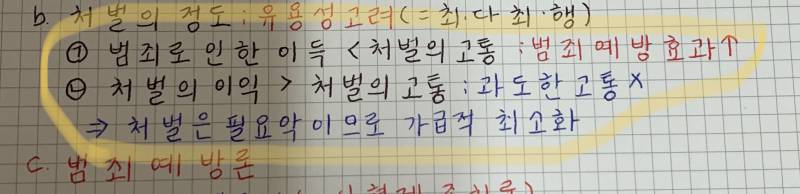 b. 처벌의 정도 : 유용성고려(=최·다최·행)
㉠ 범죄로 인한 이득 < 처벌의 고통 : 범죄예방효과↑
㉡ 처벌의 이익 > 처벌의 고통 : 과도한 고통 X
⇒ 처벌은 필요악이므로 가급적 최소화
C. 범죄예방론